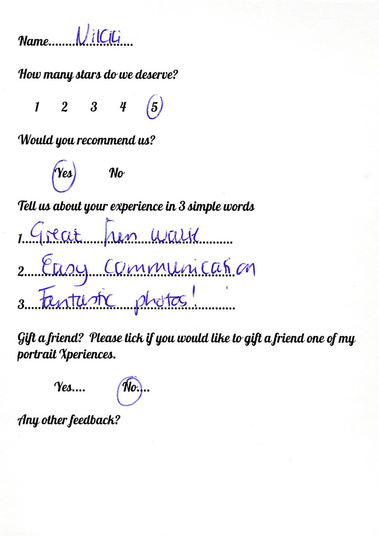 Name........Nikki....
How many stars do we deserve?
1 2 3 4 5
Would you recommend us?
Yes No
Tell us about your experience in 3 simple words
1. Great fun walk
2. Easy communication
3. Fantastic photos!
Gift a friend? Please tick if you would like to gift a friend one of my
portrait Xperiences.
Yes.... No....
Any other feedback?